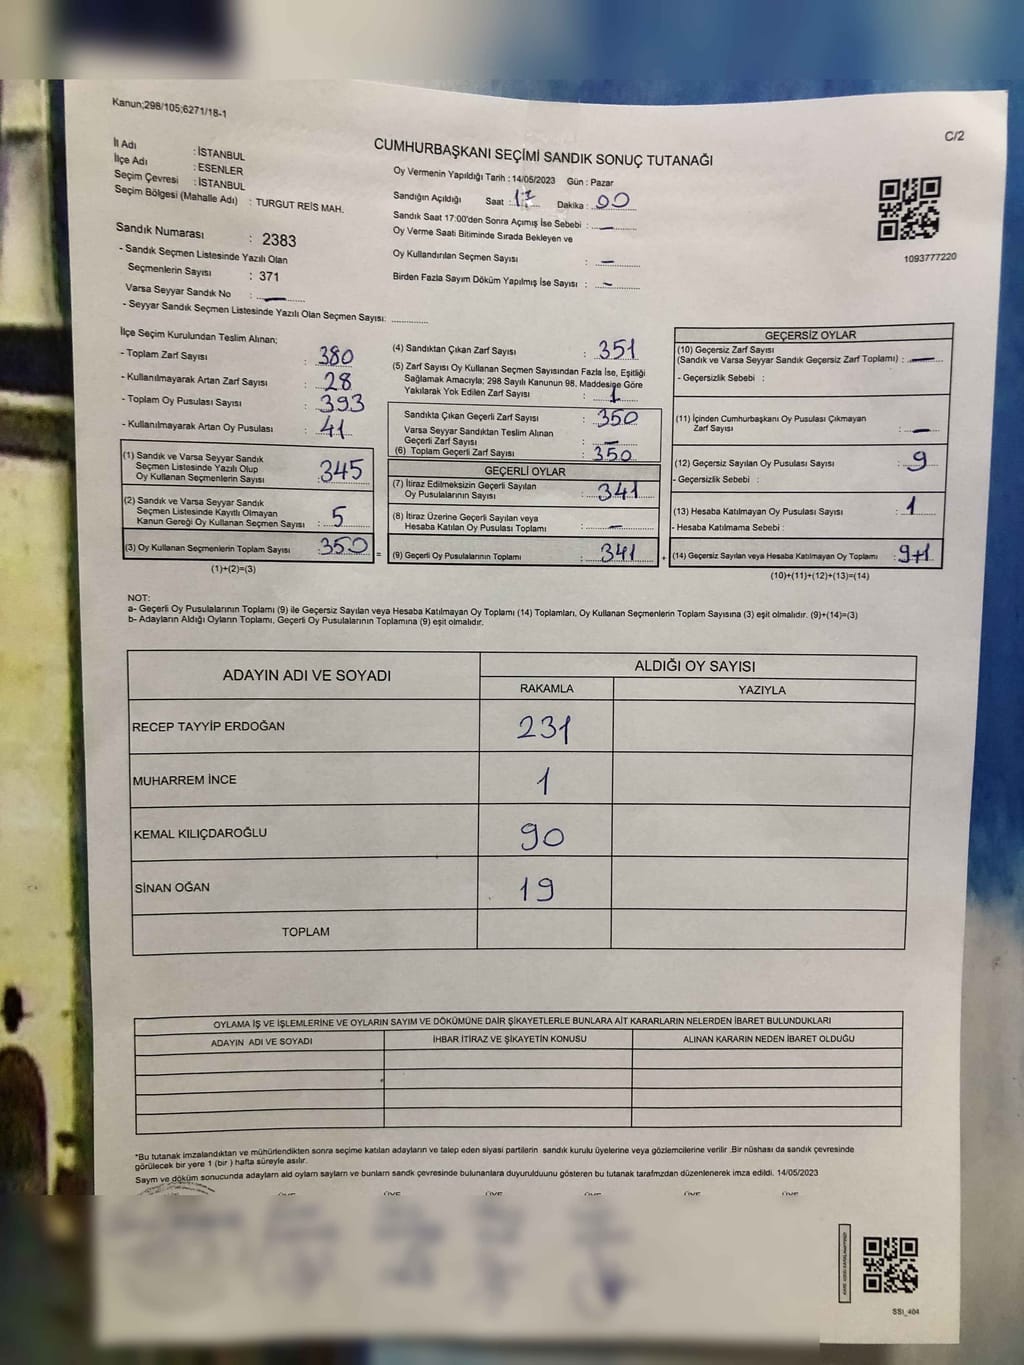 Kanun;298/105;6271/18-1
C/2
CUMHURBAŞKANI SEÇİMİ SANDIK SONUÇ TUTANAĞI
İl Adı : İSTANBUL
İlçe Adı : ESENLER
Seçim Çevresi : İSTANBUL
Seçim Bölgesi (Mahalle Adı) : TURGUT REİS MAH.
Sandık Numarası : 2383
- Sandık Seçmen Listesinde Yazılı Olan
Seçmenlerin Sayısı : 371
Varsa Seyyar Sandık No : —
- Seyyar Sandık Seçmen Listesinde Yazılı Olan Seçmen Sayısı:
Oy Vermenin Yapıldığı Tarih : 14/05/2023 Gün : Pazar
Sandığın Açıldığı Saat : 17 Dakika : 00
Sandık Saat 17:00'den Sonra Açımış İse Sebebi : —
Oy Verme Saati Bitiminde Sırada Bekleyen ve
Oy Kullandırılan Seçmen Sayısı : —
Birden Fazla Sayım Döküm Yapılmış İse Sayısı : —
1093777220
İlçe Seçim Kurulundan Teslim Alınan;
- Toplam Zarf Sayısı : 380
- Kullanılmayarak Artan Zarf Sayısı : 28
- Toplam Oy Pusulası Sayısı : 393
- Kullanılmayarak Artan Oy Pusulası : 41
(1) Sandık ve Varsa Seyyar Sandık
Seçmen Listesinde Yazılı Olup
Oy Kullanan Seçmenlerin Sayısı : 345
(2) Sandık ve Varsa Seyyar Sandık
Seçmen Listesinde Kayıtlı Olmayan
Kanun Gereği Oy Kullanan Seçmen Sayısı : 5
(3) Oy Kullanan Seçmenlerin Toplam Sayısı : 350 =
(1)+(2)=(3)
(4) Sandıktan Çıkan Zarf Sayısı : 351
(5) Zarf Sayısı Oy Kullanan Seçmen Sayısından Fazla İse, Eşitliği
Sağlamak Amacıyla; 298 Sayılı Kanunun 98. Maddesine Göre
Yakılarak Yok Edilen Zarf Sayısı : 1
Sandıkta Çıkan Geçerli Zarf Sayısı : 350
Varsa Seyyar Sandıktan Teslim Alınan
Geçerli Zarf Sayısı : —
(6) Toplam Geçerli Zarf Sayısı : 350
GEÇERLİ OYLAR
(7) İtiraz Edilmeksizin Geçerli Sayılan
Oy Pusulalarının Sayısı : 341
(8) İtiraz Üzerine Geçerli Sayılan veya
Hesaba Katılan Oy Pusulası Toplamı : —
(9) Geçerli Oy Pusulalarının Toplamı : 341 +
GEÇERSİZ OYLAR
(10) Geçersiz Zarf Sayısı
(Sandık ve Varsa Seyyar Sandık Geçersiz Zarf Toplamı) : —
- Geçersizlik Sebebi :
(11) İçinden Cumhurbaşkanı Oy Pusulası Çıkmayan
Zarf Sayısı : —
(12) Geçersiz Sayılan Oy Pusulası Sayısı : 9
- Geçersizlik Sebebi :
(13) Hesaba Katılmayan Oy Pusulası Sayısı : 1
- Hesaba Katılmama Sebebi :
(14) Geçersiz Sayılan veya Hesaba Katılmayan Oy Toplamı : 9+1
(10)+(11)+(12)+(13)=(14)
NOT:
a- Geçerli Oy Pusulalarının Toplamı (9) ile Geçersiz Sayılan veya Hesaba Katılmayan Oy Toplamı (14) Toplamları, Oy Kullanan Seçmenlerin Toplam Sayısına (3) eşit olmalıdır. (9)+(14)=(3)
b- Adayların Aldığı Oyların Toplamı, Geçerli Oy Pusulalarının Toplamına (9) eşit olmalıdır.
ADAYIN ADI VE SOYADI ALDIĞI OY SAYISI
RAKAMLA YAZIYLA
RECEP TAYYİP ERDOĞAN 231
MUHARREM İNCE 1
KEMAL KILIÇDAROĞLU 90
SİNAN OĞAN 19
TOPLAM
OYLAMA İŞ VE İŞLEMLERİNE VE OYLARIN SAYIM VE DÖKÜMÜNE DAİR ŞİKAYETLERLE BUNLARA AİT KARARLARIN NELERDEN İBARET BULUNDUKLARI
ADAYIN ADI VE SOYADI İHBAR İTİRAZ VE ŞİKAYETİN KONUSU ALINAN KARARIN NEDEN İBARET OLDUĞU
*Bu tutanak imzalandıktan ve mühürlendikten sonra seçime katılan adayların ve talep eden siyasi partilerin sandık kurulu üyelerine veya gözlemcilerine verilir .Bir nüshası da sandık çevresinde
görülecek bir yere 1 (bir ) hafta süreyle asılır.
Sayım ve döküm sonucunda adayların ald oyların sayların ve bunların sandk çevresinde bulunanlara duyurulduunu gösteren bu tutanak tarafmzdan düzenlenerek imza edildi. 14/05/2023
ÜYE ÜYE ÜYE ÜYE ÜYE ÜYE
SSI_404